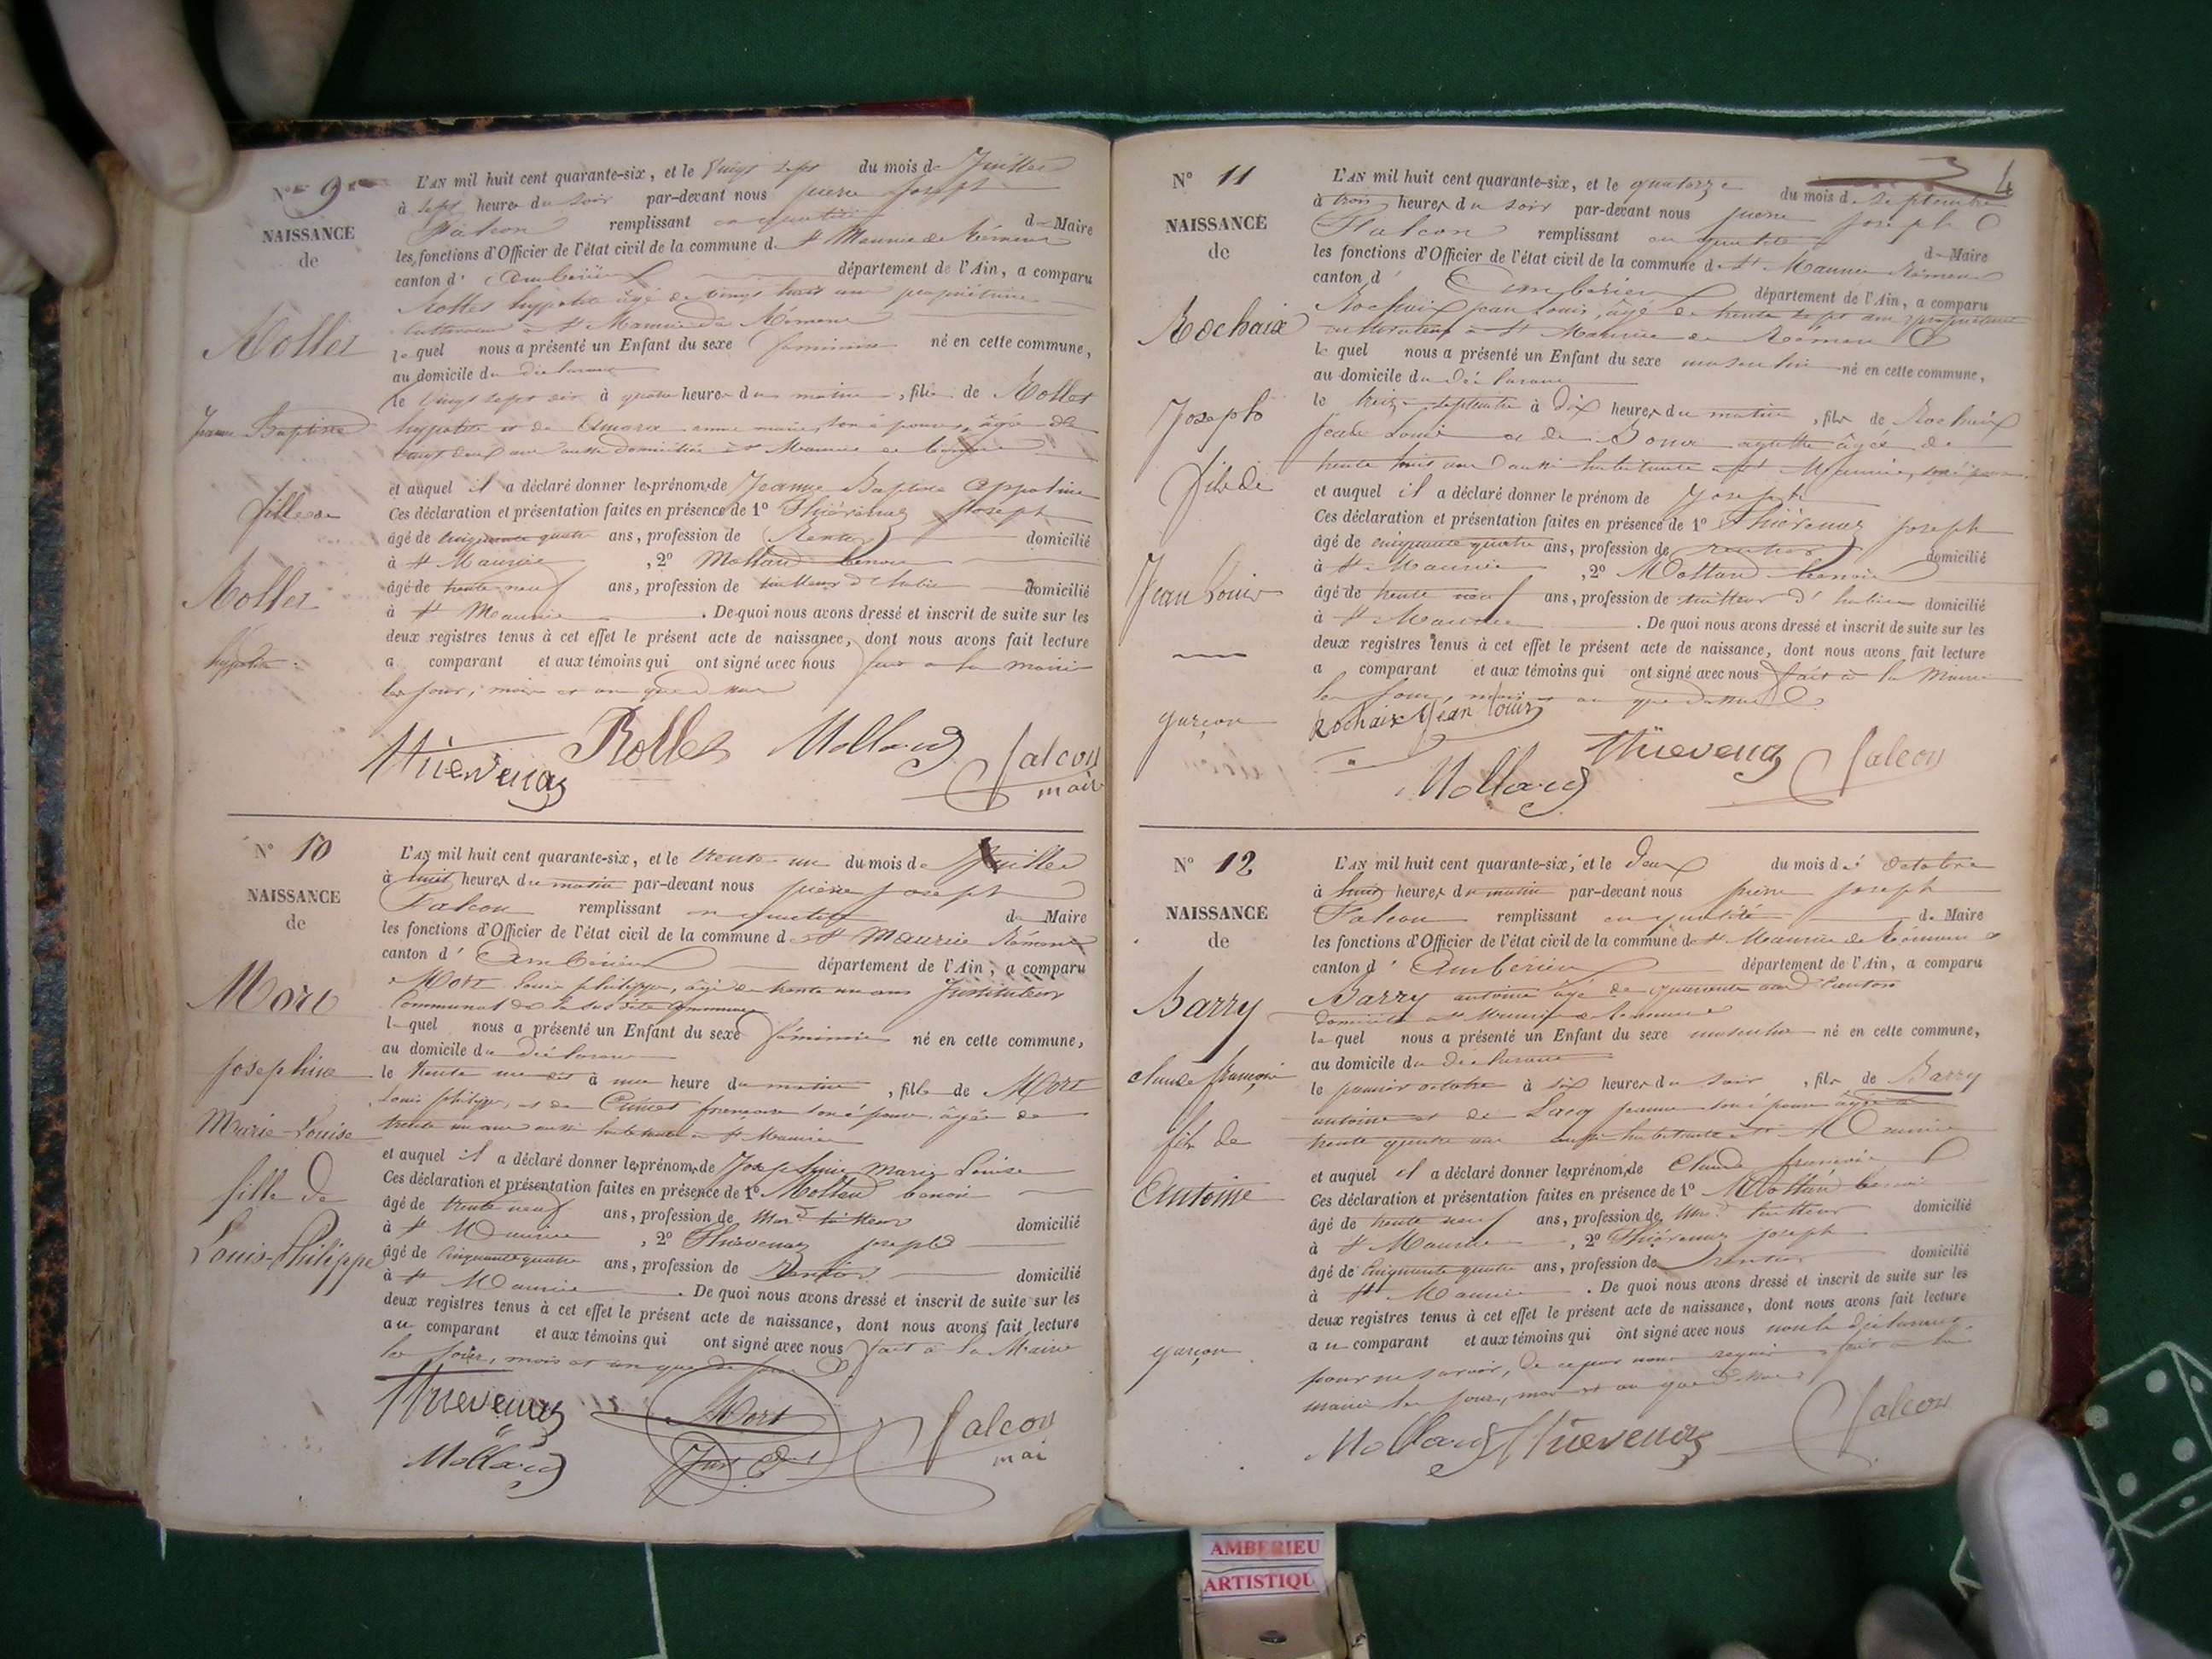 N° 9
NAISSANCE
de
Rollet
Jeanne Baptiste
fille de
Rollet
hypolite
L'AN mil huit cent quarante-six, et le Vingt sept du mois de Juillet
à sept heures du soir par-devant nous pierre Joseph
Falcon remplissant en qualité de Maire
les fonctions d'Officier de l'état civil de la commune de St Maurice de Rémens
canton d' Ambérieu département de l'Ain, a comparu
Rollet hypolite âgé de vingt huit ans propriétaire
cultivateur à St Maurice de Rémens
lequel nous a présenté un Enfant du sexe féminin né en cette commune,
au domicile du déclarant
le Vingt sept à quatre heures du matin, fille de Rollet
hypolite et de anne marie, son épouse, âgée de
vingt deux ans aussi domiciliée à St Maurice de Rémens
et auquel il a déclaré donner les prénoms de Jeanne Baptiste Appoline
Ces déclaration et présentation faites en présence de 1° Thiévenaz Joseph
âgé de cinquante quatre ans, profession de Rentier domicilié
à St Maurice, 2° Molland benoit
âgé de trente neuf ans, profession de tailleur d'habits domicilié
à St Maurice. De quoi nous avons dressé et inscrit de suite sur les
deux registres tenus à cet effet le présent acte de naissance, dont nous avons fait lecture
a comparant et aux témoins qui ont signé avec nous fait à la mairie
les jour, mois et an que dessus
Thievenaz Rollet Molland Falcon
maire
N° 10
NAISSANCE
de
Mort
Josephine
Marie-Louise
fille de
Louis-Philippe
L'AN mil huit cent quarante-six, et le trente-un du mois de Juillet
à huit heures du matin par-devant nous pierre joseph
Falcon remplissant en qualité de Maire
les fonctions d'Officier de l'état civil de la commune de St Maurice Rémens
canton d' Ambérieu département de l'Ain, a comparu
Mort Louis philippe, âgé de trente un ans Instituteur
Communal de la susdite Commune
lequel nous a présenté un Enfant du sexe féminin né en cette commune,
au domicile du déclarant
le trente un à une heure du matin, fille de Mort
Louis philippe, et de françoise son épouse âgée de
trente un ans aussi habitante à St Maurice
et auquel il a déclaré donner les prénoms de Josephine Marie Louise
Ces déclaration et présentation faites en présence de 1° Molland benoit
âgé de trente neuf ans, profession de Mard tailleur domicilié
à St Maurice, 2° Thievenaz joseph
âgé de Cinquante quatre ans, profession de Rentier domicilié
à St Maurice. De quoi nous avons dressé et inscrit de suite sur les
deux registres tenus à cet effet le présent acte de naissance, dont nous avons fait lecture
au comparant et aux témoins qui ont signé avec nous fait à la Mairie
les jour, mois et an que
Thievenaz Mort Falcon
Molland maire
N° 11
NAISSANCE
de
Rochaix
Joseph
fils de
Jean Louis
garçon
4
L'AN mil huit cent quarante-six, et le quatorze du mois de septembre
à trois heures du soir par-devant nous pierre joseph
Falcon remplissant en qualité de Maire
les fonctions d'Officier de l'état civil de la commune de St Maurice Rémens
canton d' Ambérieu département de l'Ain, a comparu
Rochaix jean Louis, âgé de trente sept ans propriétaire
cultivateur à St Maurice de Rémens
lequel nous a présenté un Enfant du sexe masculin né en cette commune,
au domicile du déclarant
le treize septembre à Dix heures du matin, fils de Rochaix
Jean Louis et de agathe âgée de
trente huit ans aussi habitante à St Maurice, son épouse
et auquel il a déclaré donner le prénom de Joseph
Ces déclaration et présentation faites en présence de 1° Thiévenaz joseph
âgé de cinquante quatre ans, profession de rentier domicilié
à St Maurice, 2° Molland benoit
âgé de trente neuf ans, profession de tailleur d'habits domicilié
à St Maurice. De quoi nous avons dressé et inscrit de suite sur les
deux registres tenus à cet effet le présent acte de naissance, dont nous avons fait lecture
a comparant et aux témoins qui ont signé avec nous fait à la Mairie
les jour, mois et an que dessus
Rochaix Jean Louis Thievenaz Falcon
Molland
N° 12
NAISSANCE
de
Barry
claude françois
fils de
Antoine
garçon
L'AN mil huit cent quarante-six, et le Deux du mois d' Octobre
à huit heures du matin par-devant nous pierre joseph
Falcon remplissant en qualité de Maire
les fonctions d'Officier de l'état civil de la commune de St Maurice de Rémens
canton d' Ambérieu département de l'Ain, a comparu
Barry antoine âgé de quarante ans
domicilié à St Maurice de Rémens
lequel nous a présenté un Enfant du sexe masculin né en cette commune,
au domicile du déclarant
le premier octobre à six heures du soir, fils de Barry
antoine et de Jeanne son épouse âgée de
trente quatre ans aussi habitante à St Maurice
et auquel il a déclaré donner les prénoms de Claude françois
Ces déclaration et présentation faites en présence de 1° Molland benoit
âgé de trente neuf ans, profession de Mard tailleur domicilié
à St Maurice, 2° Thiévenaz joseph
âgé de Cinquante quatre ans, profession de rentier domicilié
à St Maurice. De quoi nous avons dressé et inscrit de suite sur les
deux registres tenus à cet effet le présent acte de naissance, dont nous avons fait lecture
au comparant et aux témoins qui ont signé avec nous non le déclarant
pour ne savoir, de ce par nous requis, fait à la
mairie les jour, mois et an que dessus
Molland Thievenaz Falcon
AMBERIEU
ARTISTIQU